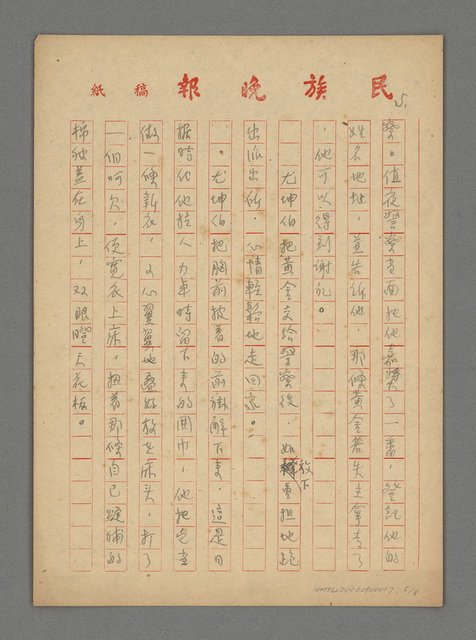 民族晚報稿紙
5.
警。值夜警察當面把他嘉獎了一番，登記他的
姓名地址，並告訴他，那條黃金若失主拿去了
，他可以得到謝禮。
尤坤伯把黃金交給警察後，如放下重担地跑
出派出所，心情輕鬆地走回家。
尤坤伯把胸前披着的前掛解下來，這是日
据時代他拉人力車時留下來的圍巾，他把它当
做一條新衣，又心翼翼地疊好放在床头，打了
一個呵欠，便寬衣上床，扭着那條自己縫補的
棉被蓋在身上，双眼瞪天花板。
NMTL20060900017 5/8